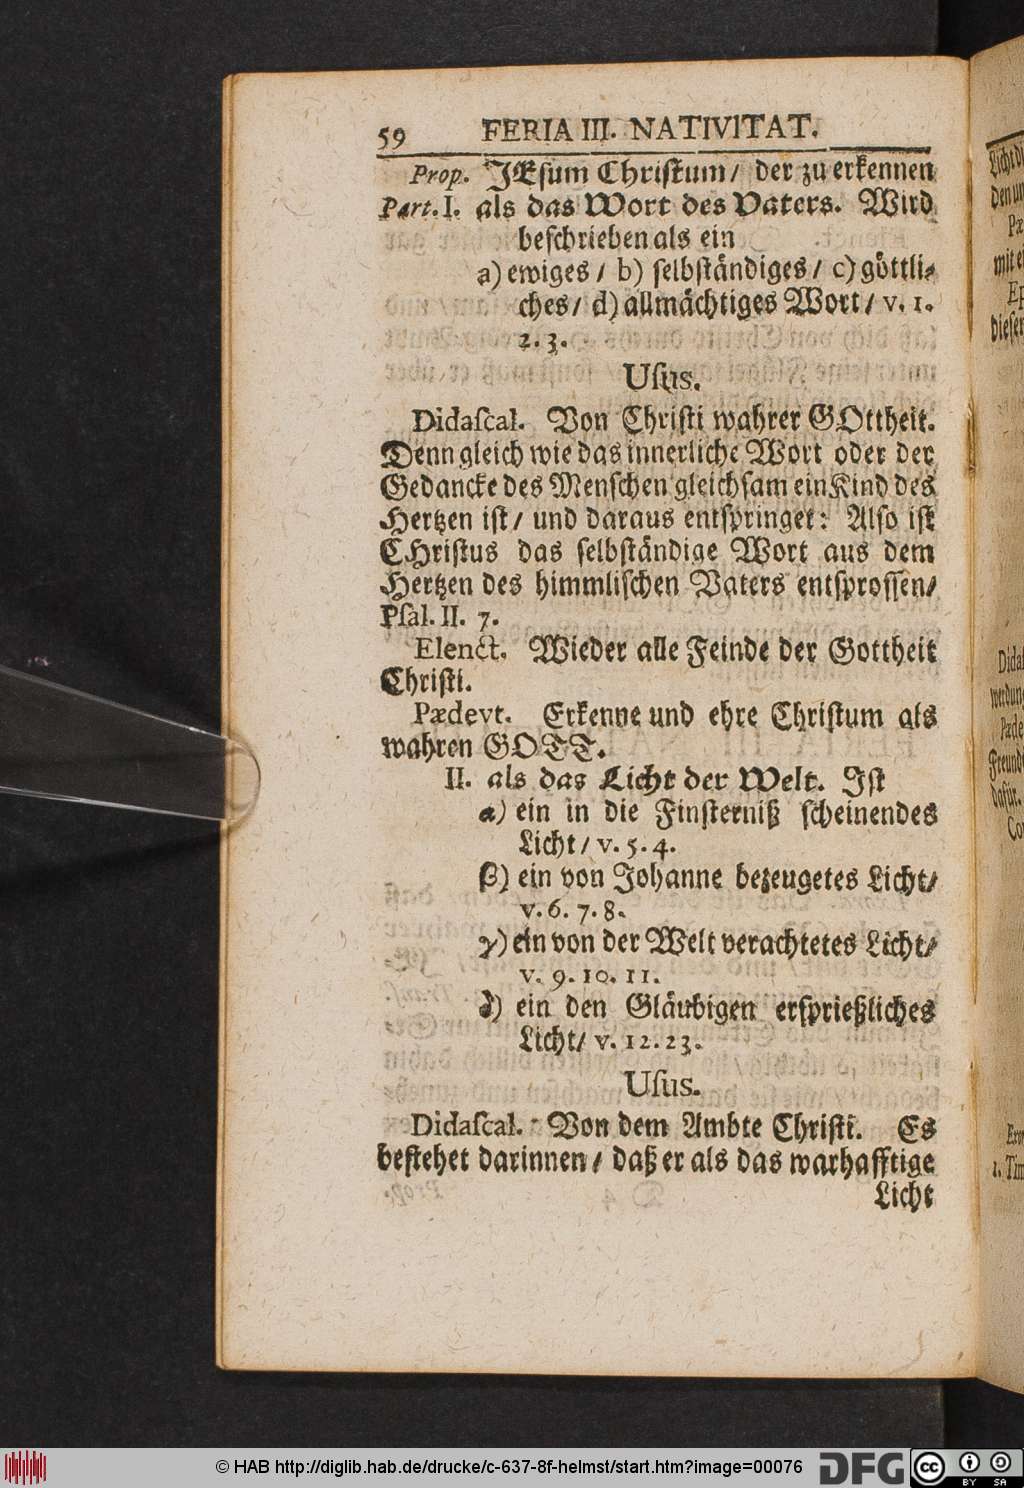 59 FERIA III. NATIVITAT.
Prop. JEsum Christum / der zu erkennen
Part. I. als das Wort des Vaters. Wird
beschrieben als ein
a) ewiges / b) selbständiges / c) göttli-
ches / d) allmächtiges Wort / v. 1.
2. 3.
Usus.
Didascal. Von Christi wahrer GOttheit.
Denn gleich wie das innerliche Wort oder der
Gedancke des Menschen gleichsam ein Kind des
Hertzen ist / und daraus entspringet: Also ist
CHristus das selbständige Wort aus dem
Hertzen des himmlischen Vaters entsprossen /
Psal. II. 7.
Elenct. Wieder alle Feinde der Gottheit
Christi.
Pædevt. Erkenne und ehre Christum als
wahren GOTT.
II. als das Licht der Welt. Ist
α) ein in die Finsterniß scheinendes
Licht / v. 5. 4.
β) ein von Johanne bezeugetes Licht /
v. 6. 7. 8.
γ) ein von der Welt verachtetes Licht /
v. 9. 10. 11.
δ) ein den Gläubigen ersprießliches
Licht / v. 12. 23.
Usus.
Didascal. Von dem Ambte Christi. Es
bestehet darinnen / daß er als das warhafftige
Licht
© HAB http://diglib.hab.de/drucke/c-637-8f-helmst/start.htm?image=00076 DFG cc BY SA